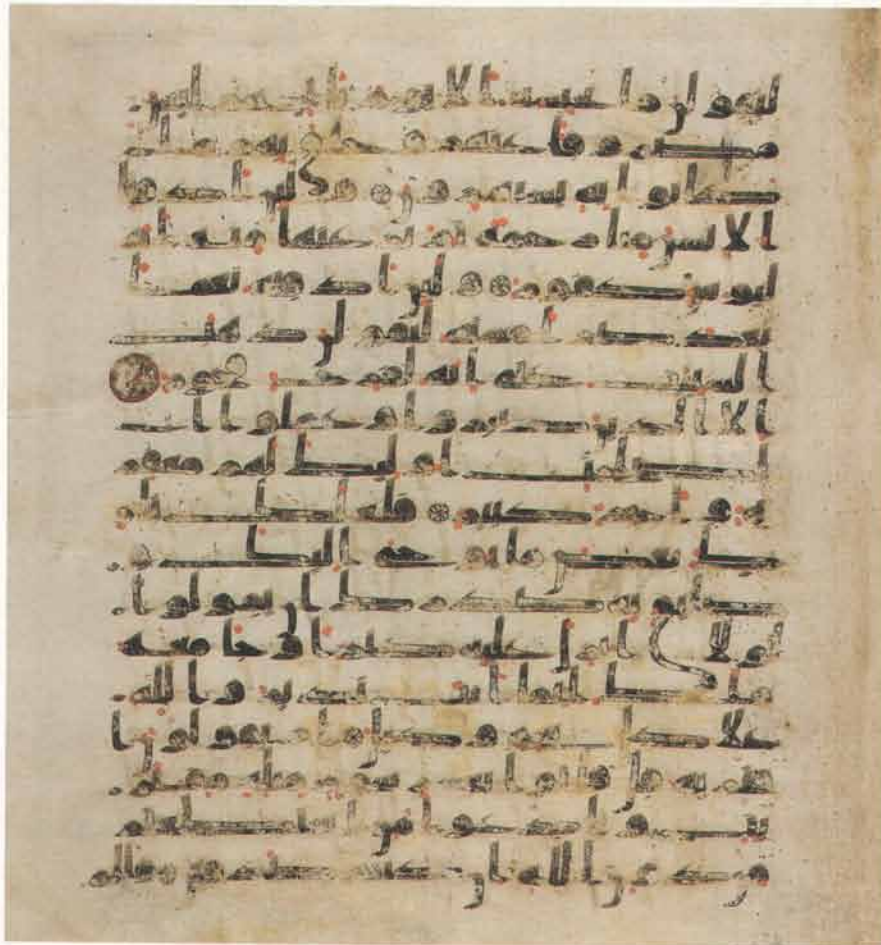 ليقولن ما يحبسه الا يوم ياتيهم ليس
مصروفا عنهم وحاق بهم ما
كانوا به يستهزون ولئن اذقنا
الانسن منا رحمة ثم نزعنها منه انه
ليوس كفور ولئن اذقنه نعما
بعد ضرا مسته ليقولن ذهب
السيات عني انه لفرح فخور
الا الذين صبروا وعملوا ا
لصلحت اولئك لهم مغفر
ة واجر كبير فلعلك تار
ك بعض ما يوحى اليك و
ضايق به صدرك ان يقولوا
لولا انزل عليه كنز او جا معه
ملك انما انت نذير والله
على كل شي وكيل ام يقولون ا
فتريه قل فاتوا بعشر سور مثله مفتر
يت وادعوا من استطعتم
من دون الله ان كنتم صدقين فالم